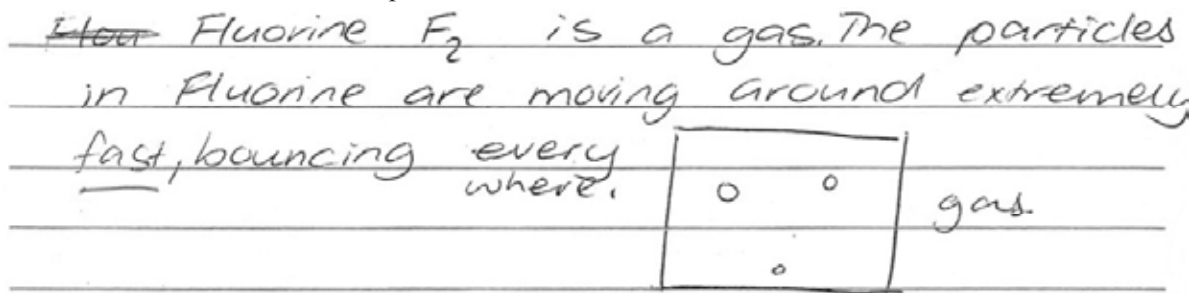 Fluorine F₂ is a gas. The particles
in Fluorine are moving around extremely
fast, bouncing every
where.
gas.